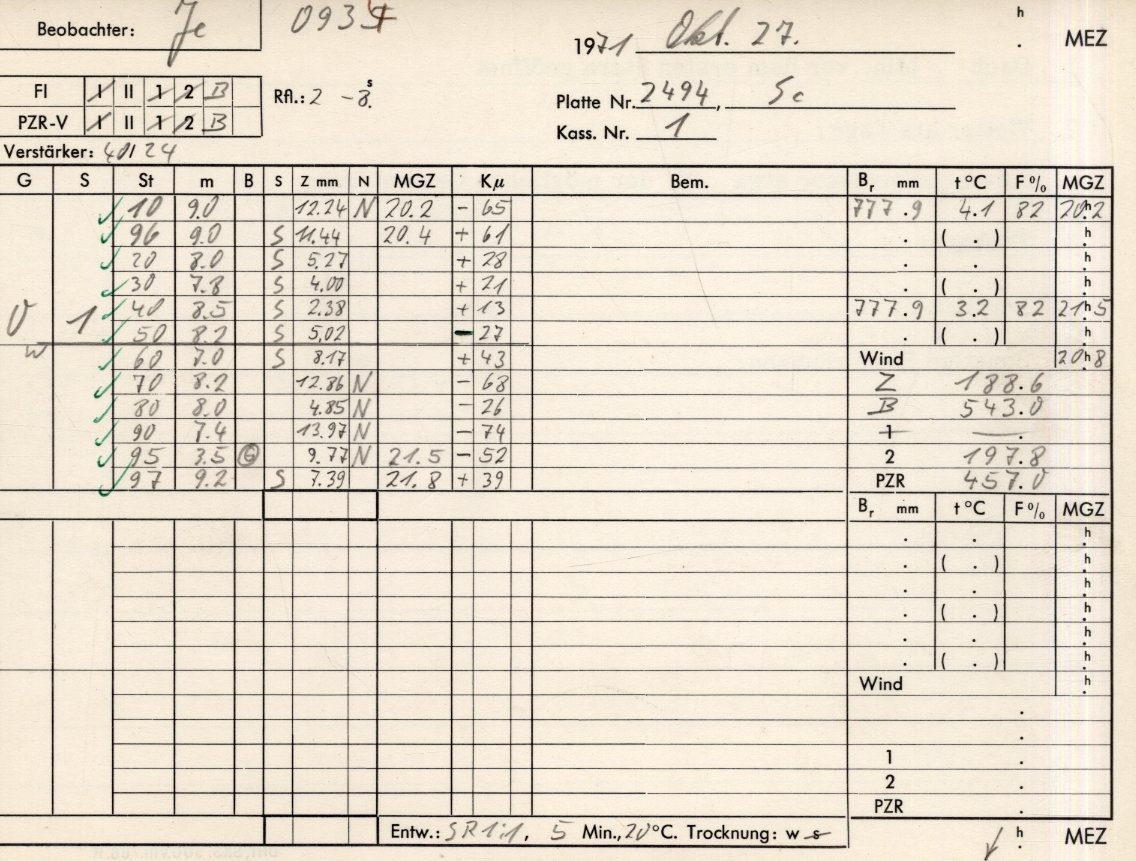 Beobachter: Je 0934
1971 Okt. 27. h . MEZ
FI I II 1 2 B Rfl.: 2 -8s.
PZR-V I II 1 2 B
Platte Nr. 2494, Sc
Kass. Nr. 1
Verstärker: 40/24
G S St m B S Z mm N MGZ Kμ Bem. Br mm t°C F% MGZ
10 9.0 12.24 N 20.2 - 65 777.9 4.1 82 20h.2
96 9.0 S 11.44 20.4 + 61 . ( . ) h.
20 8.0 S 5.27 + 28 . . h.
30 7.8 S 4.00 + 21 . ( . ) h.
0 1 40 8.5 S 2.38 + 13 777.9 3.2 82 21h.5
50 8.2 S 5.02 - 27 . ( . ) h.
w 60 7.0 S 8.17 + 43 Wind 20h.8
70 8.2 12.86 N - 68 Z 188.6
80 8.0 4.85 N - 26 B 543.0
90 7.4 13.97 N - 74 1 — .
95 3.5 G 9.77 N 21.5 - 52 2 197.8
97 9.2 S 7.39 21.8 + 39 PZR 457.0
Br mm t°C F% MGZ
. . h.
. ( . ) h.
. . h.
. ( . ) h.
. . h.
. ( . ) h.
Wind h.
.
.
1 .
2 .
PZR .
Entw.: SR 1:1, 5 Min., 20°C. Trocknung: w s h . MEZ